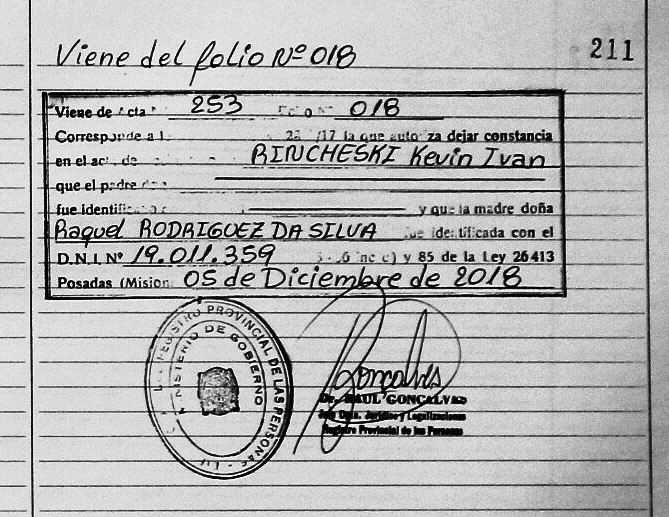 Viene del folio Nº 018
211
Viene de Acta 253 Folio Nº 018
Corresponde a 23 /17 la que autoriza dejar constancia
en el acta de RINCHESKI Kevin Ivan
que el padre
fue identific y que la madre doña
Raquel RODRIGUEZ DA SILVA fue identificada con el
D.N.I. Nº 19.011.359 inc c) y 85 de la Ley 26413
Posadas (Mision 05 de Diciembre de 2018
REGISTRO PROVINCIAL DE LAS PERSONAS
MINISTERIO DE GOBIERNO
Goncalves
Dr. RAUL GONCALVES
Jurídica y Legalizaciones
Registro Provincial de las Personas